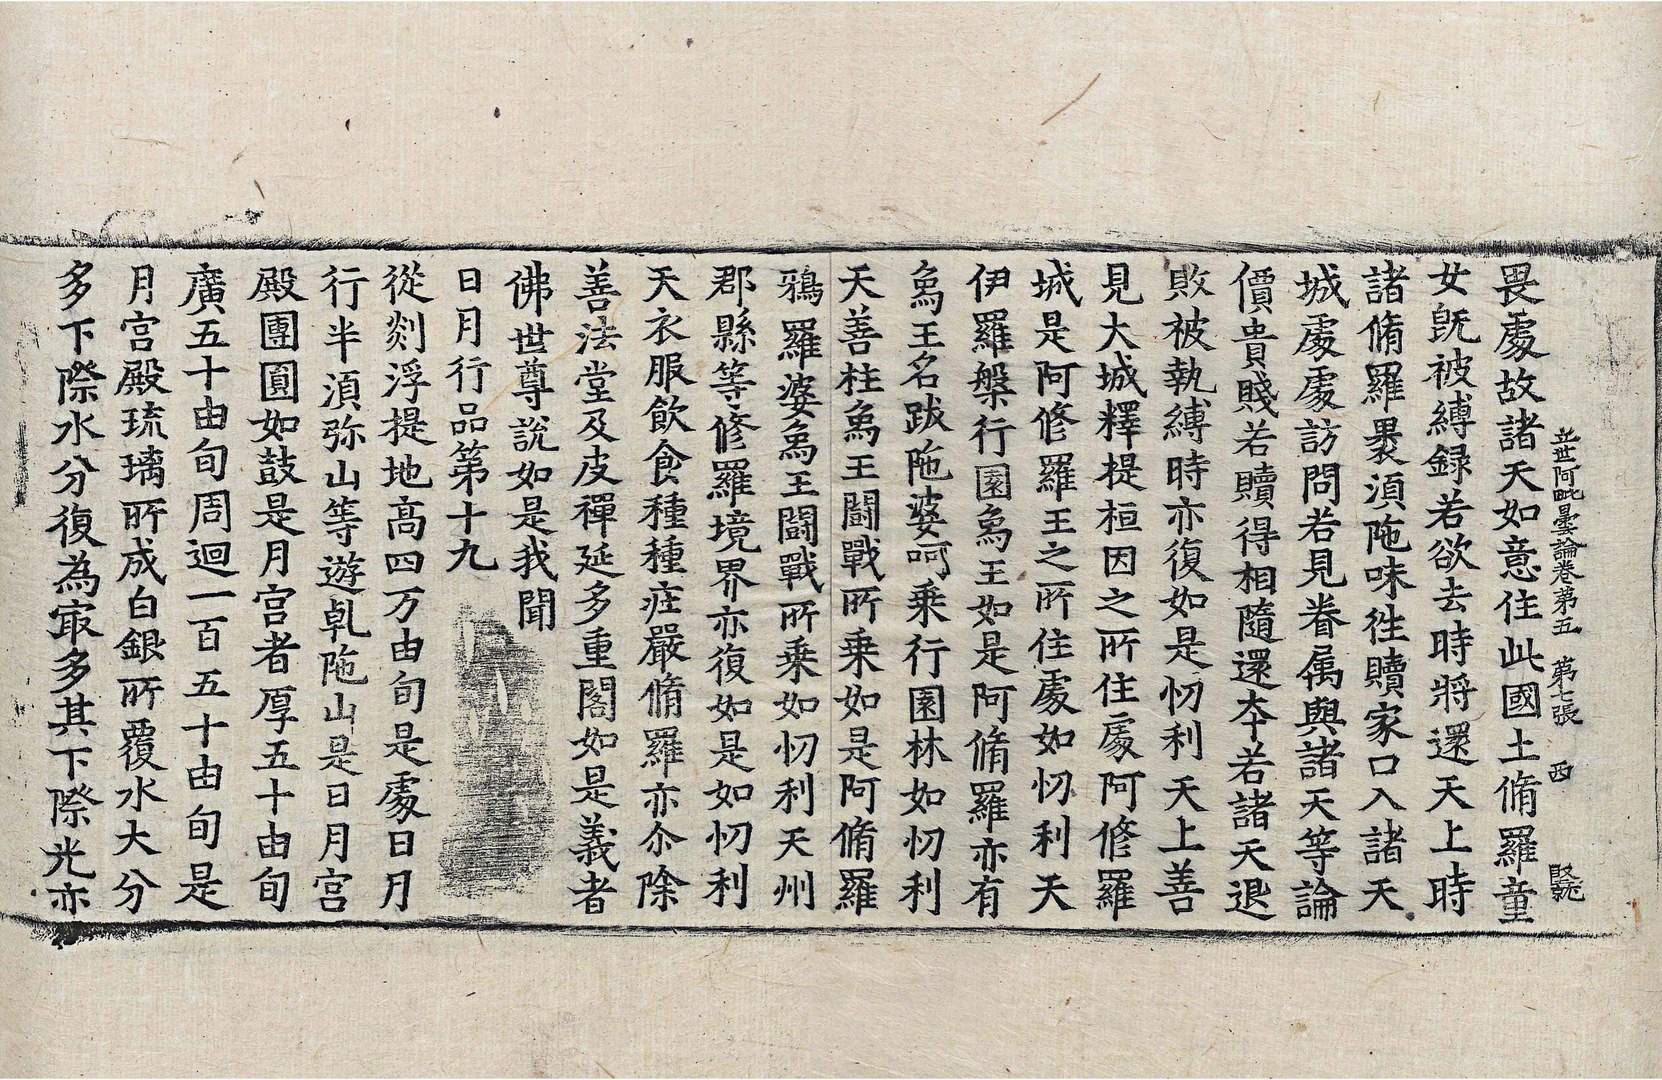 立世阿毗曇論卷第五 第七張 西
畏處故諸天如意住此國土脩羅童
女旣被縛録若欲去時將還天上時
諸脩羅褁湏陁味徃贖家口入諸天
城處處訪問若見眷属與諸天等論
價貴賤若贖得相隨還夲若諸天退
敗被執縛時亦復如是忉利天上善
見大城釋提桓因之所住處阿修羅
城是阿修羅王之所住處如忉利天
伊羅槃行園𫠉王如是阿脩羅亦有
𫠉王名跋陁婆呵乘行園林如忉利
天善柱𫠉王鬪戰所乘如是阿脩羅
鵶羅婆𫠉王鬪戰所乘如忉利天州
郡縣等修羅境界亦復如是如忉利
天衣服飮食種種㽵嚴脩羅亦尒除
善法堂及皮禪延多重閣如是義者
佛世尊說如是我聞
日月行品第十九
從剡浮提地高四万由旬是處日月
行半湏弥山等遊乹陁山是日月宫
殿團圓如鼓是月宫者厚五十由旬
廣五十由旬周迴一百五十由旬是
月宫殿琉璃所成白銀所覆水大分
多下際水分復為㝡多其下際光亦